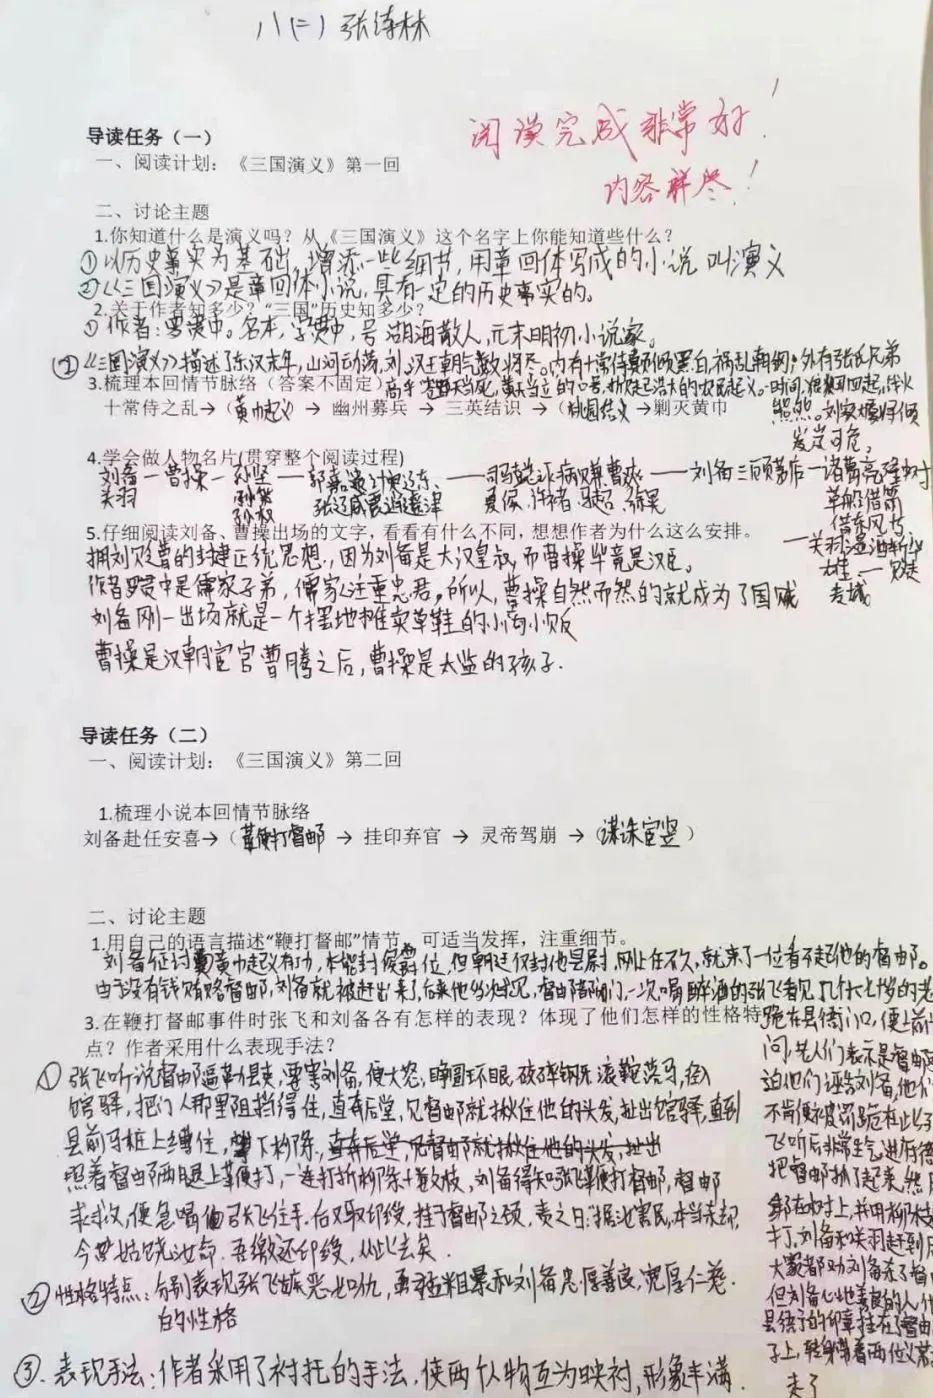 八(二) 张诗林
阅读完成非常好!
内容详尽!
导读任务（一）
一、阅读计划：《三国演义》第一回
二、讨论主题
1.你知道什么是演义吗？从《三国演义》这个名字上你能知道些什么？
①以历史事实为基础，增添一些细节，用章回体写成的小说叫演义
②《三国演义》是章回体小说，具有一定的历史事实的。
2.关于作者知多少？“三国”历史知多少？
①作者：罗贯中。名本，字贯中，号湖海散人，元末明初小说家。
②《三国演义》描述了东汉末年，山河动荡，刘汉王朝气数将尽。内有十常侍颠倒黑白，祸乱朝纲；外有张氏兄弟
高呼苍天当死，黄天当立的口号，掀起浩大的农民起义。一时间，狼烟四起，战火
熊熊。刘家媼将倾
岌岌可危，
3.梳理本回情节脉络（答案不固定）
十常侍之乱→（黄巾起义）→ 幽州募兵 → 三英结识 → （桃园结义→剿灭黄巾
4.学会做人物名片(贯穿整个阅读过程)
刘备一曹操一孙坚
关羽 孙策
孙权
郭嘉遗计定辽东、
张辽威震逍遥津
司马懿诈病赚曹爽
夏侯、许褚、马超、徐晃
刘备三顾茅庐一诸葛亮隆中对
草船借箭
借东风
关羽温酒斩华雄
走城
5.仔细阅读刘备、曹操出场的文字，看看有什么不同，想想作者为什么这么安排。
拥刘贬曹的封建正统思想，因为刘备是大汉皇叔，而曹操毕竟是汉臣
作者罗贯中是儒家子弟，儒家注重忠君。所以，曹操自然而然的就成为了国贼
刘备刚一出场就是一个摆地摊卖草鞋的小商小贩
曹操是汉朝宦官曹腾之后，曹操是太监的孩子.
导读任务（二）
一、阅读计划：《三国演义》第二回
1.梳理小说本回情节脉络
刘备赴任安喜→（鞭打督邮 → 挂印弃官 → 灵帝驾崩 → （谋诛宦竖）
二、讨论主题
1.用自己的语言描述“鞭打督邮”情节，可适当发挥，注重细节。
刘备征讨黄巾起义有功，本能封侯爵位，但朝廷仅封他县尉，刚上任不久，就来了一位看不起他的督邮。
由于没有钱贿赂督邮，刘备就被赶出来了，后来他多次求见，督邮都阻门，一次喝醉酒的张飞看见几个六七十岁的老
跪在县衙门口，便上前
问，老人们表示是督邮
迫他们诬告刘备，他们
不肯便被罚跪在此处了
飞听后非常生气，进行
把督邮抓了起来，然后
绑在树上，并用柳枝
打，刘备和关羽赶到后
大家都劝刘备杀了督
但刘备心地善良的人
县绶子的印章挂在了督邮
子上，转身带着两位义弟
走了
3.在鞭打督邮事件时张飞和刘备各有怎样的表现？体现了他们怎样的性格特
点？作者采用什么表现手法？
①张飞听说督邮逼勒县吏，要害刘备，便大怒，睁圆环眼，咬碎钢牙，滚鞍落马，径入
馆驿，把门人那里阻挡得住，直奔后堂，见督邮就揪住他的头发，扯出馆驿，直到
县前马桩上缚住，攀下柳条，直奔后堂，见督邮就揪住他的头发，扯出
照着督邮两腿上鞭打，一连打折柳条十数枝，刘备得知张飞鞭打督邮，督邮
求救，便急喝住张飞住手。后又取印绶，挂于督邮之颈，责之曰：据汝害民，本当杀却，
今姑饶汝命。吾缴还印绶，从此去矣.
②性格特点：分别表现张飞嫉恶如仇，勇猛粗暴和刘备忠厚善良，宽厚仁慈.
的性格
③.表现手法：作者采用了衬托的手法，使两个人物互为映衬，形象丰满.